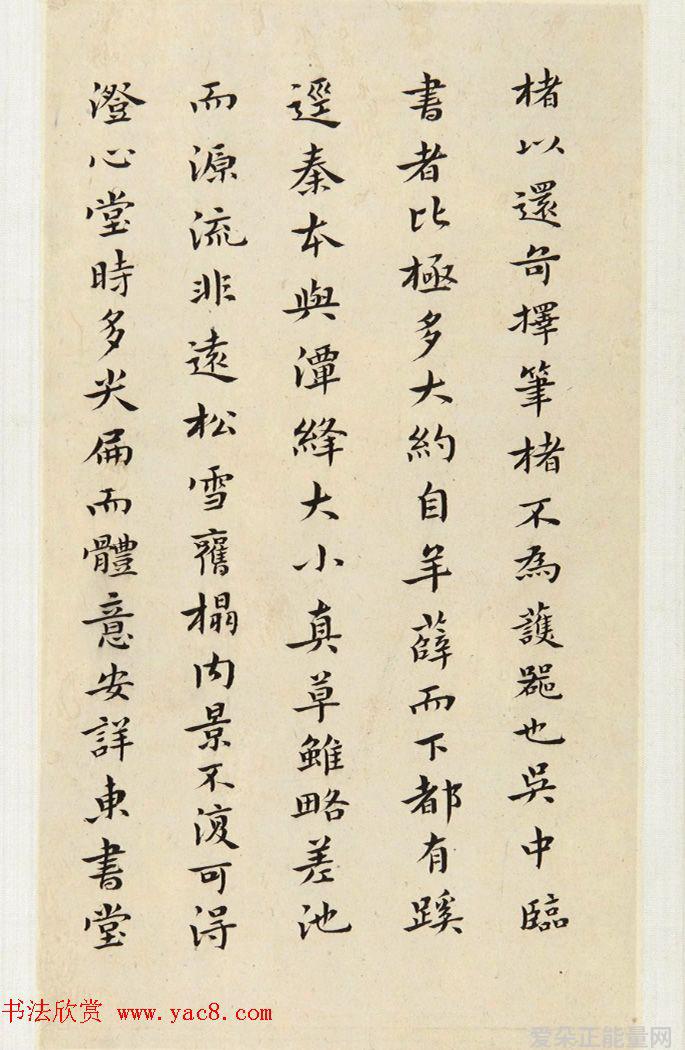 楮以還苟擇筆楮不為護器也吳中臨
書者比極多大約自羊薛而下都有蹊
逕秦本與潭絳大小真草雖略差池
而源流非遠松雪舊榻內景不復可得
澄心堂時多尖扁而體意安詳東書堂
书法欣赏 www.yac8.com
爱朵正能量网